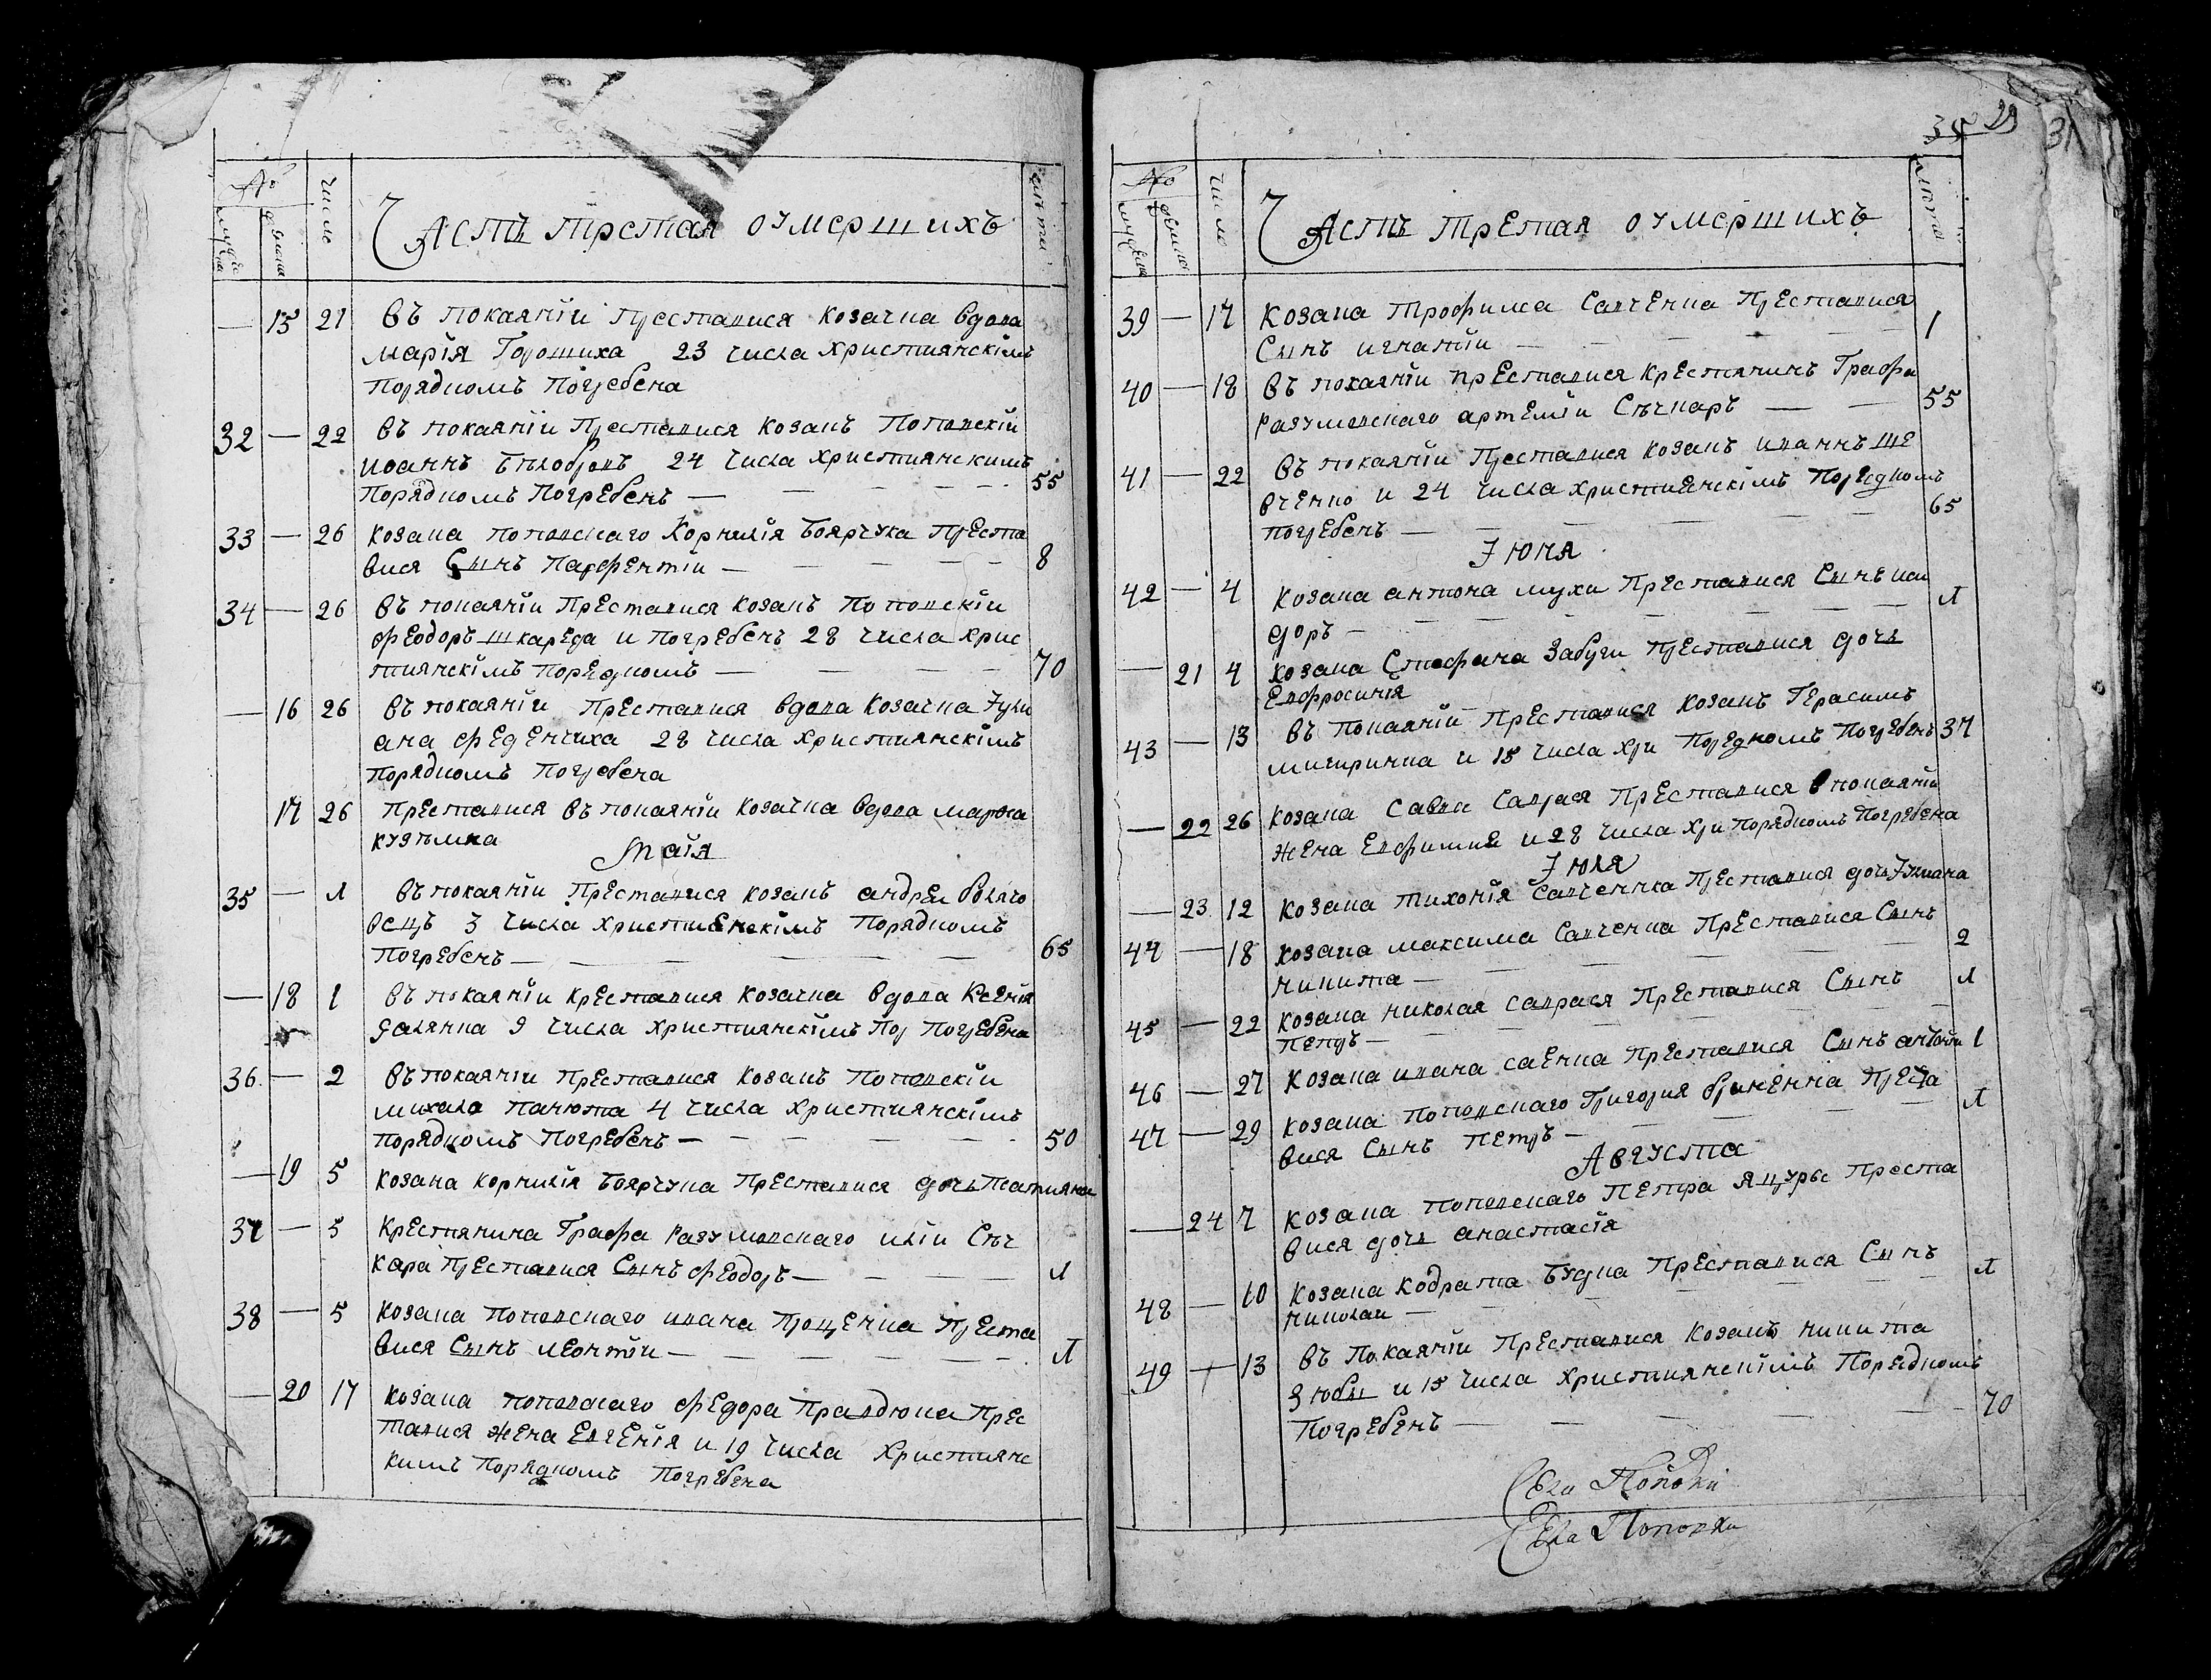 № числа Часть третая умершихъ лѣта
мужеска женска
— 15 21 въ покаянїи преставися козачка вдова
марїя Горошиха 23 числа християнскїмъ
порядкомъ погребена
32 — 22 въ покаянїи преставися козакъ поповскїй
иоаннъ бѣлобровъ 24 числа християнскимъ
порядкомъ погребенъ — 55
33 — 26 козака поповскаго Корнилїя боярчука преста
вися сынъ парфентїи — 8
34 — 26 въ покаянїи преставися козакъ поповскїи
феодоръ шкареда и погребенъ 28 числа хрис
тиянскїмъ порядкомъ — 70
— 16 26 въ покаянїи преставися вдова козачка Іули
ана феденчиха 28 числа християнскїмъ
порядкомъ погребена
17 26 преставися въ покаянїи козачка вдова марфа
кузѣмка
Маїя
35 — 1 въ покаянїи преставися козакъ андреи
3 числа християнскїмъ порядкомъ
погребенъ — 65
— 18 1 въ покаянїи преставися козачка вдова Ксенїя
9 числа християнскїмъ пор погребена
36 — 2 въ покаянїи преставися козакъ поповскїи
михало панюта 4 числа християнскїмъ
порядкомъ погребенъ — 50
— 19 5 козака корнилїя боярчука преставися дочь татияна
37 — 5 крестянина Графа разумовскаго илїи Сѣч
каря преставися сынъ феодоръ — 1
38 — 5 козака поповскаго ивана проценка преста
вися сынъ леонтїи — 1
— 20 17 козака поповскаго федора правдюка прес
тавися жена евгенїя и 19 числа християнс
кимъ порядкомъ погребена
35 29 31
№ числа Часть третая умершихъ лѣта
мужеска женска
39 — 17 козака трофима савченка преставися
сынъ игнатїи — 1
40 — 18 въ покаянїи преставися крестянинъ Графа
разумовскаго артемїи Сѣчкаръ — 55
41 — 22 въ покаянїи преставися козакъ иваннъ ше
вченко и 24 числа христиенскїмъ порядкомъ
погребенъ — 65
Іюня
42 — 4 козака антона мухи преставися сынъ иси
доръ — 1
— 21 4 козака Стефана Забуги преставися дочь
Евфросинїя
43 — 13 въ покаянїи преставися козакъ Герасимъ
мигиринка и 15 числа хри порядкомъ погребенъ 37
— 22 26 козака савки саврася преставися в покаянїи
жена евфимия и 28 числа хри порядкомъ погребена
Іюля
— 23 12 козака тихонїя савченнка преставися дочь Іулиана
44 — 18 козака максима савченка преставися сынъ
никита — 2
45 — 22 козака николая саврася преставися сынъ
петръ — 1
46 — 27 козака ивана саенка преставися сынъ антонїи 1
47 — 29 козака поповскаго Григория преста
вися сынъ петръ — 1
Августа
— 24 7 козака поповскаго петра яцуры преста
вися дочь анастасїя
48 — 10 козака кодрата будка преставися сынъ
николаи — 1
49 — 13 въ покаянїи преставися козакъ никита
зюбы и 15 числа християнскїмъ порядкомъ
погребенъ — 70
Села Поповки
Села Поповки